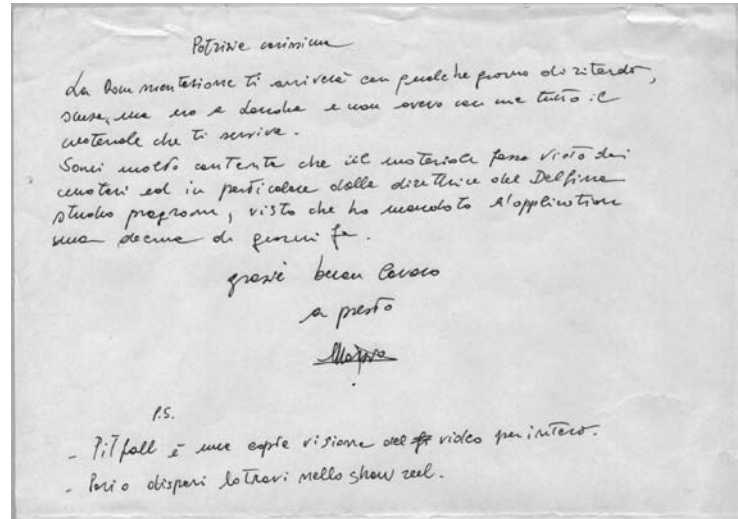 Patrizia carissima
La documentazione ti arriverà con qualche giorno di ritardo,
scusa, ma ero a Londra e non avevo con me tutto il
materiale che ti serviva.
Sarei molto contenta che il materiale fosse visto dai
curatori ed in particolare dalla direttrice del Delfina
studio program, visto che ho mandato l'application
una decina di giorni fa.
grazie buon lavoro
a presto
P.S.
- Pitfall è una copia visione del video per intero.
- Pari o dispari lo trovi nello show reel.